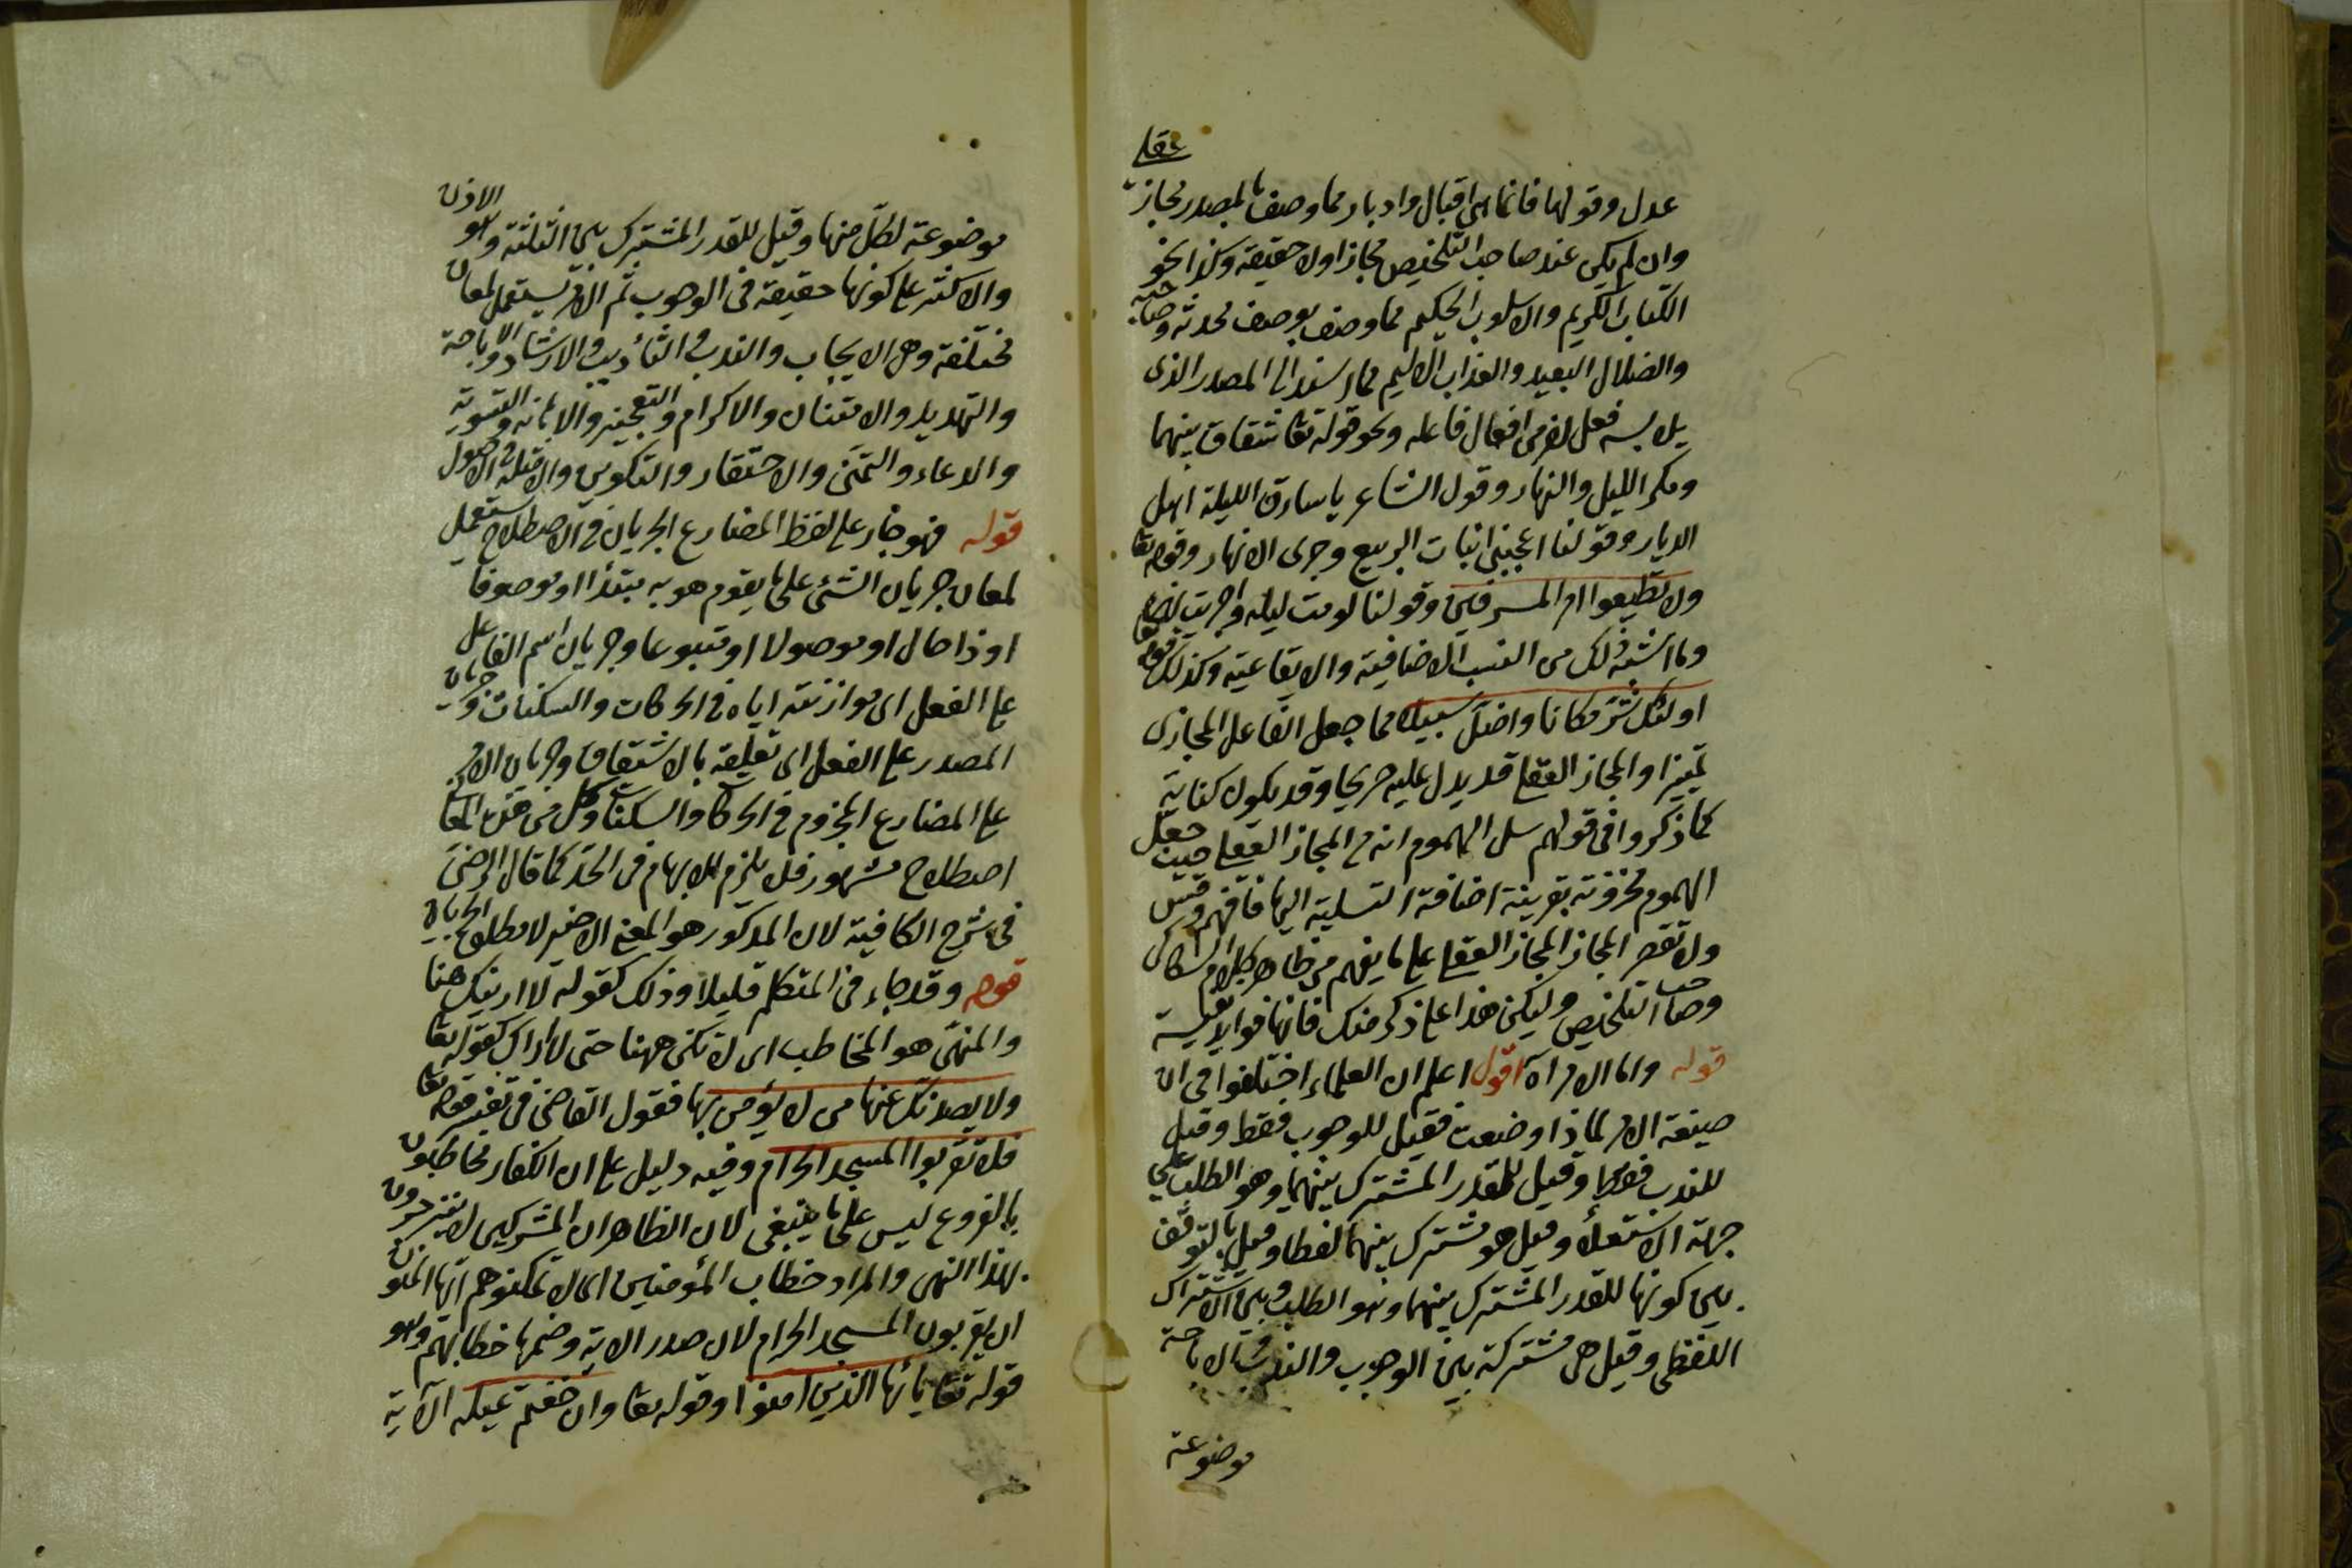 عقلي
عدل وقولها فانما هي اقبال وادبار مما وصف بالمصدر مجاز
وان لم يكن عند صاحب التلخيص مجازا ولا حقيقة وكذا نحو
الكتاب الكريم والاسلوب الحكيم مما وصف بوصف محدثه وصاحبه
والضلال البعيد والعذاب الاليم مما اسند الى المصدر الذى
يلابسه فعل اخر من افعال فاعله ونحو قوله تعا شقاق بينهما
ومكر الليل والنهار وقول الشاعر يا سارق الليلة اهل
الديار وقولنا اعجبني انبات الربيع وجرى الانهار وقوله تعا
ولا تطيعوا امر المسرفين وقولنا نومت ليله واجريت النهر
وما اشبه ذلك من النسب الاضافية والايقاعية وكذلك قوله تعا
اولئك شر مكانا واضل سبيلا مما جعل الفاعل المجازى
تميزا والمجاز العقلي قد يدل عليه صريحا وقد يكون كناية
كما ذكروا في قولهم سل الهموم انه من المجاز العقلي حيث جعل
الهموم محزونة بقرينة اضافة التسلية اليها فافهم وقس
ولا تقصر المجاز المجاز العقلي على ما يفهم من ظاهر كلام السكاكى
وصاحب التلخيص وليكن هذا على ذكر منك فانها فوايد نفيسة
قوله واما الامر آه اقول اعلم ان العلماء اختلفوا في ان
صيغة الامر لماذا وضعت فقيل للوجوب فقط وقيل
للندب فقط وقيل للقدر المشترك بينهما وهو الطلب على
جهة الاستعلاء وقيل هو مشترك بينهما لفظا وقيل بالتوقف
بين كونها للقدر المشترك بينهما وهو الطلب وبين الاشتراك
اللفظى وقيل هى مشتركة بين الوجوب والندب والاباحة
موضوعة
موضوعة لكل منها وقيل للقدر المشترك بين الثلثة وهو الاذن
والاكثر على كونها حقيقة فى الوجوب ثم الامر يستعمل لمعان
مختلفة وهى الايجاب والندب والتأديب والارشاد والاباحة
والتهديد والامتنان والاكرام والتعجيز والاهانة والتسوية
والدعاء والتمنى والاحتقار والتكوين والامثلة في الاصول
قوله فهو جار على لفظ المضارع الجريان في الاصطلاح يستعمل
لمعان جريان الشئ على ما يقوم هو به مبتدأ او موصوفا
او ذا حال او موصولا او متبوعا وجريان اسم الفاعل
على الفعل اى موازنته اياه في الحركات والسكنات وجريان
المصدر على الفعل اى تعلقه بالاشتقاق وجريان الامر
على المضارع المجزوم في الحركات والسكنات وكل من هذه المعا
اصطلاح مشهور فلا يلزم الابهام فى الحد كما قال الرضى
فى شرح الكافية لان المذكور هو المعنى الاخير لا مطلق الجريان
قوله وقد جاء فى المتكلم قليلا وذلك كقوله لا ارينك هنا
والمنهى هو المخاطب اى لا تكن ههنا حتى لا اراك كقوله تعا
ولا يصدنك عنها من لا يؤمن بها فقول القاضى فى تفسير قوله تعا
فلا تقربوا المسجد الحرام وفيه دليل على ان الكفار مخاطبون
بالفروع ليس على ما ينبغى لان الظاهر ان المشركين لا ينزجرون
بهذا النهى والمراد خطاب المؤمنين اى لا تمكنوهم ايها المؤمنون
ان يقربون المسجد الحرام لان صدر الاية وختمها خطاب لهم وهو
قوله تعا يا ايها الذين امنوا وقوله تعا وان خفتم عيلة الآية